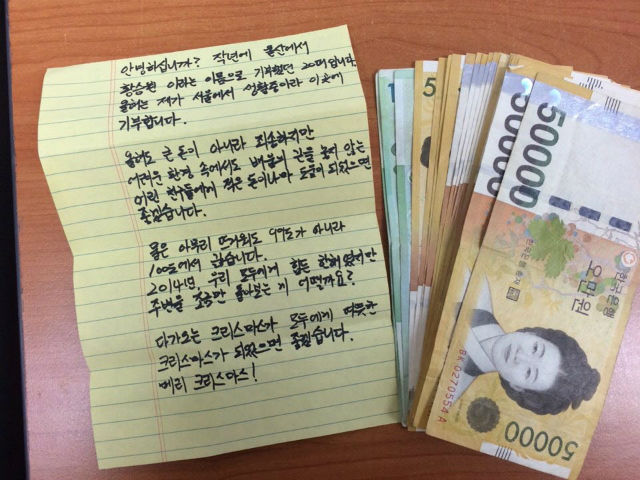 안녕하십니까? 작년에 울산에서
황승원 이라는 이름으로 기부했던 20대입니다.
올해는 제가 서울에서 생활중이라 이곳에
기부합니다.
올해도 큰 돈이 아니라 죄송하지만
어려운 환경 속에서도 배움의 끈을 놓지 않는
어린 친구들에게 적은 돈이나마 도움이 되었으면
좋겠습니다.
물은 아무리 뜨거워도 99도가 아니라
100도에서 끓습니다.
2014년, 우리 모두에게 힘든 한해였지만
주변을 조금만 돌아보는 게 어떨까요?
다가오는 크리스마스가 모두에게 따뜻한
크리스마스가 되었으면 좋겠습니다.
메리 크리스마스!
50000
50000
50000
한국은행
오만원
한국은행 총재
BK 0270554 A
50000